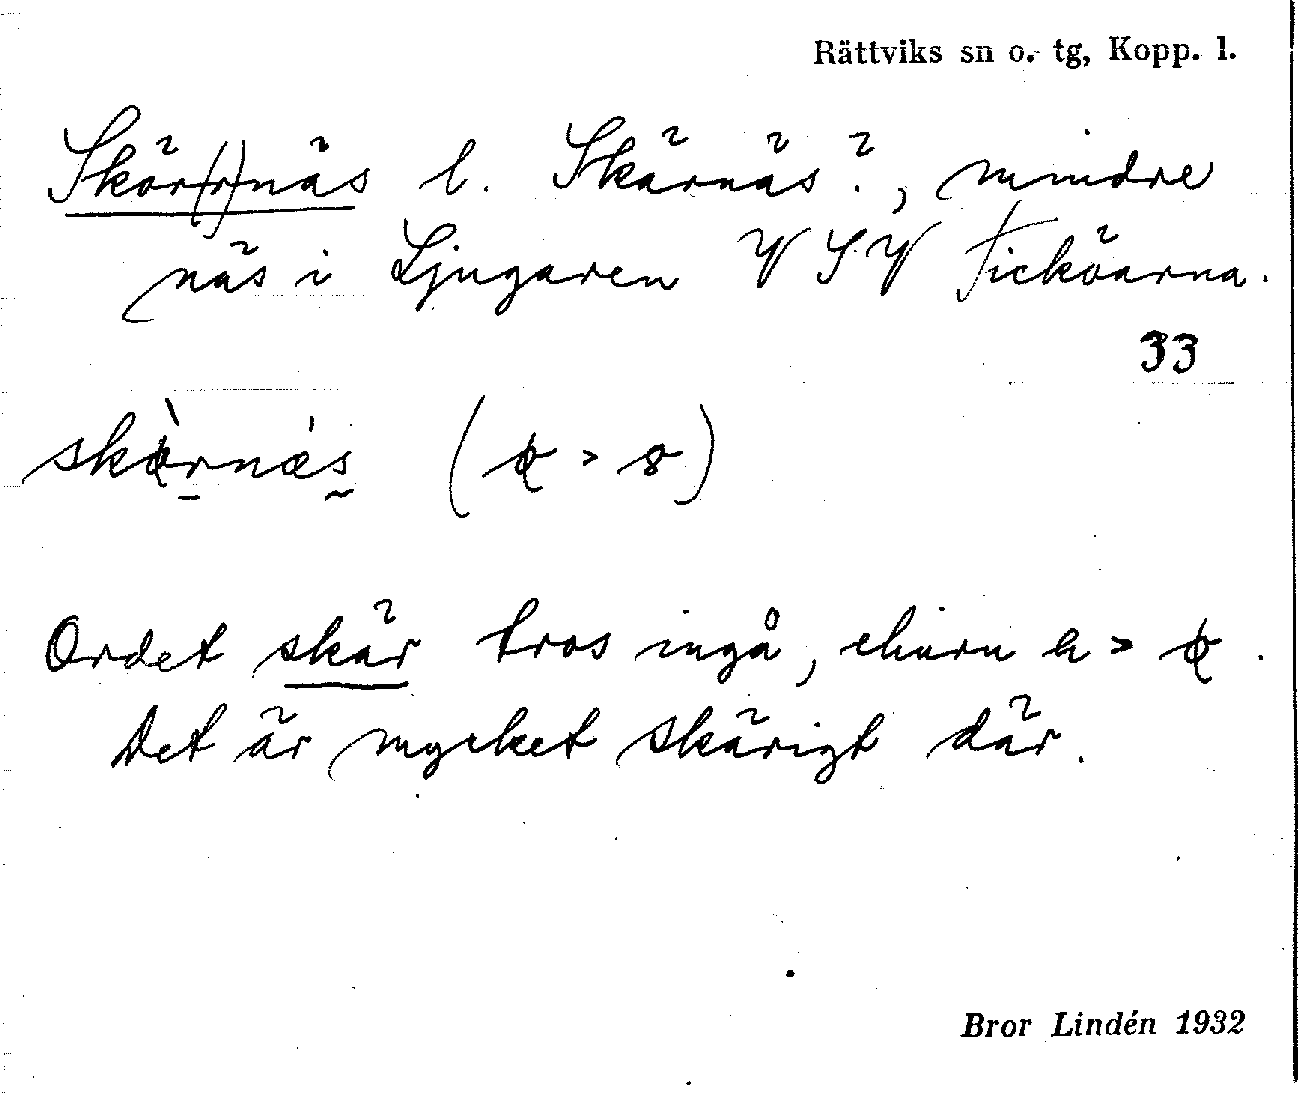 Rättviks sn o. tg, Kopp. l.
Skör(r)näs l. Skärnäs?, mindre
näs i Ljugaren VSV Ficköarna.
33
Ordet skär tros ingå, ehuru
Det är mycket skärigt där.
Bror Lindén 1932